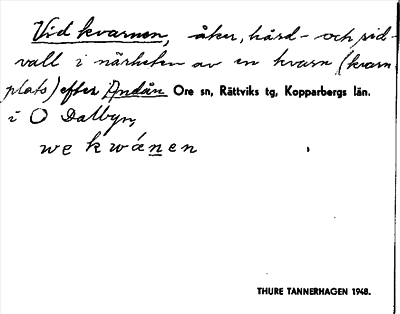 Vid kvarnen, åker, hård- och sid-
vall i närheten av en kvarn (kvarn-
plats) efter Andån Ore sn, Rättviks tg, Kopparbergs län.
i O Dalbyn,
we kwánen
THURE TANNERHAGEN 1948.